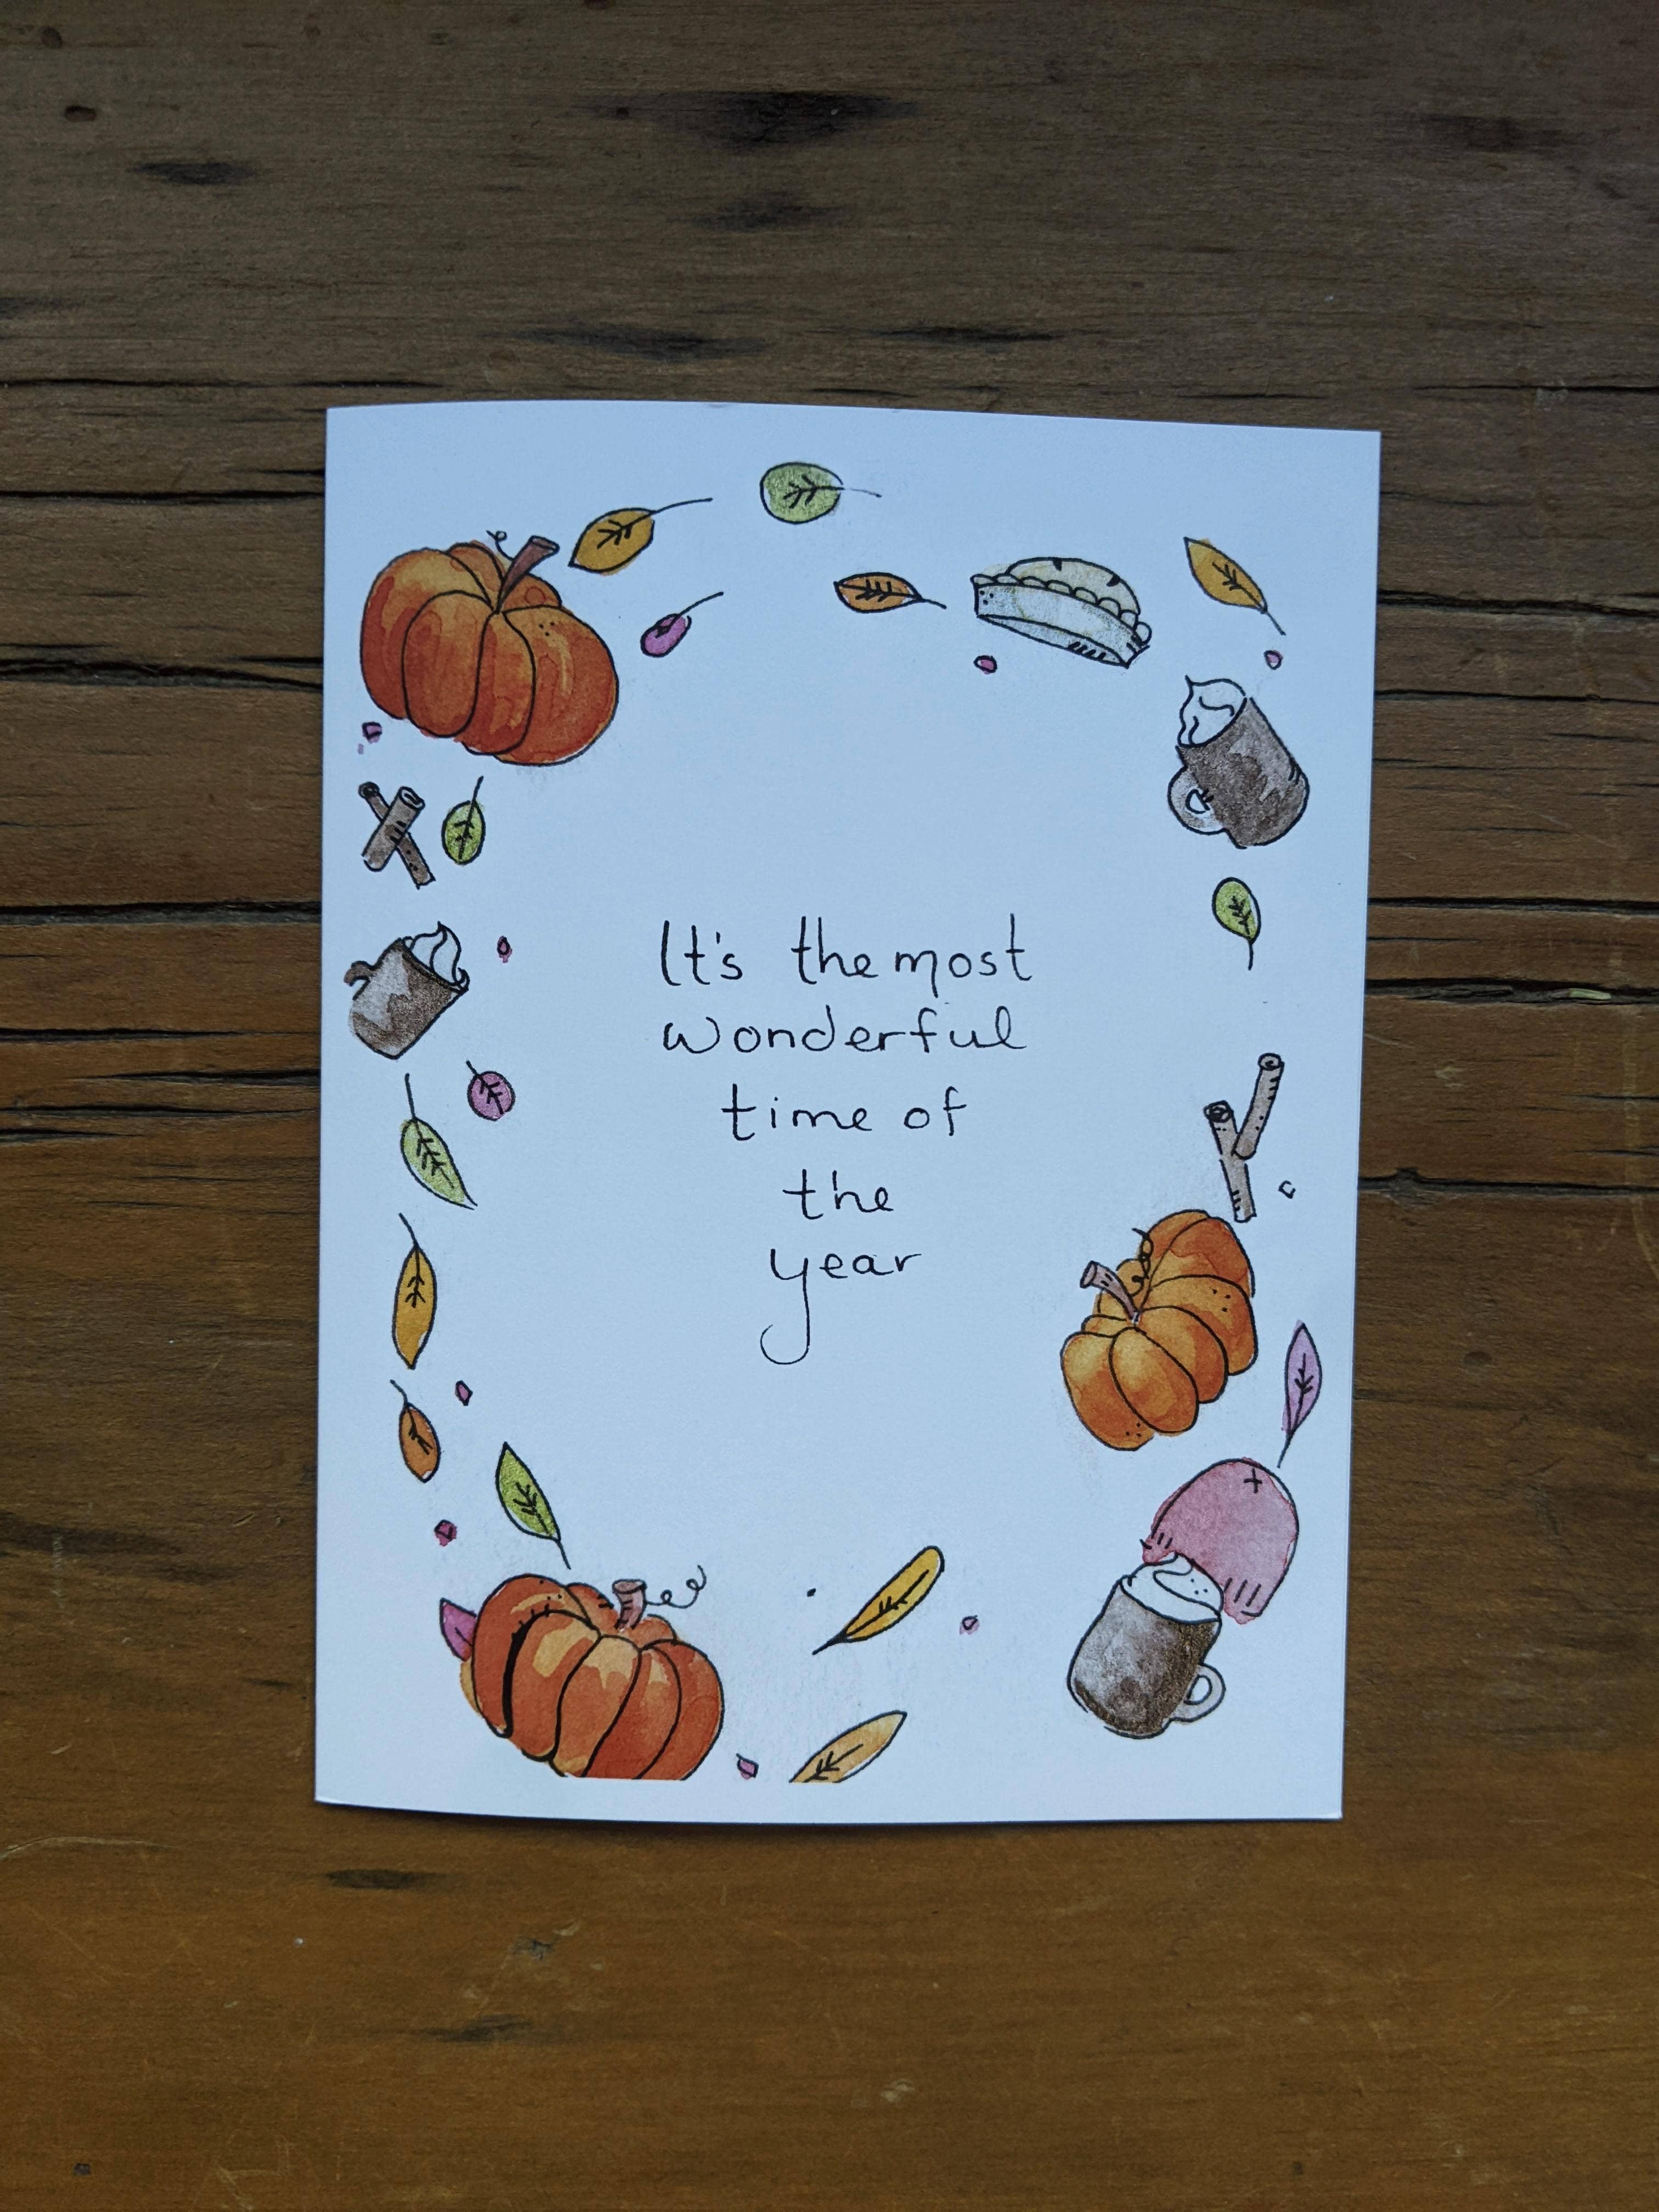 It's the most
wonderful
time of
the
year